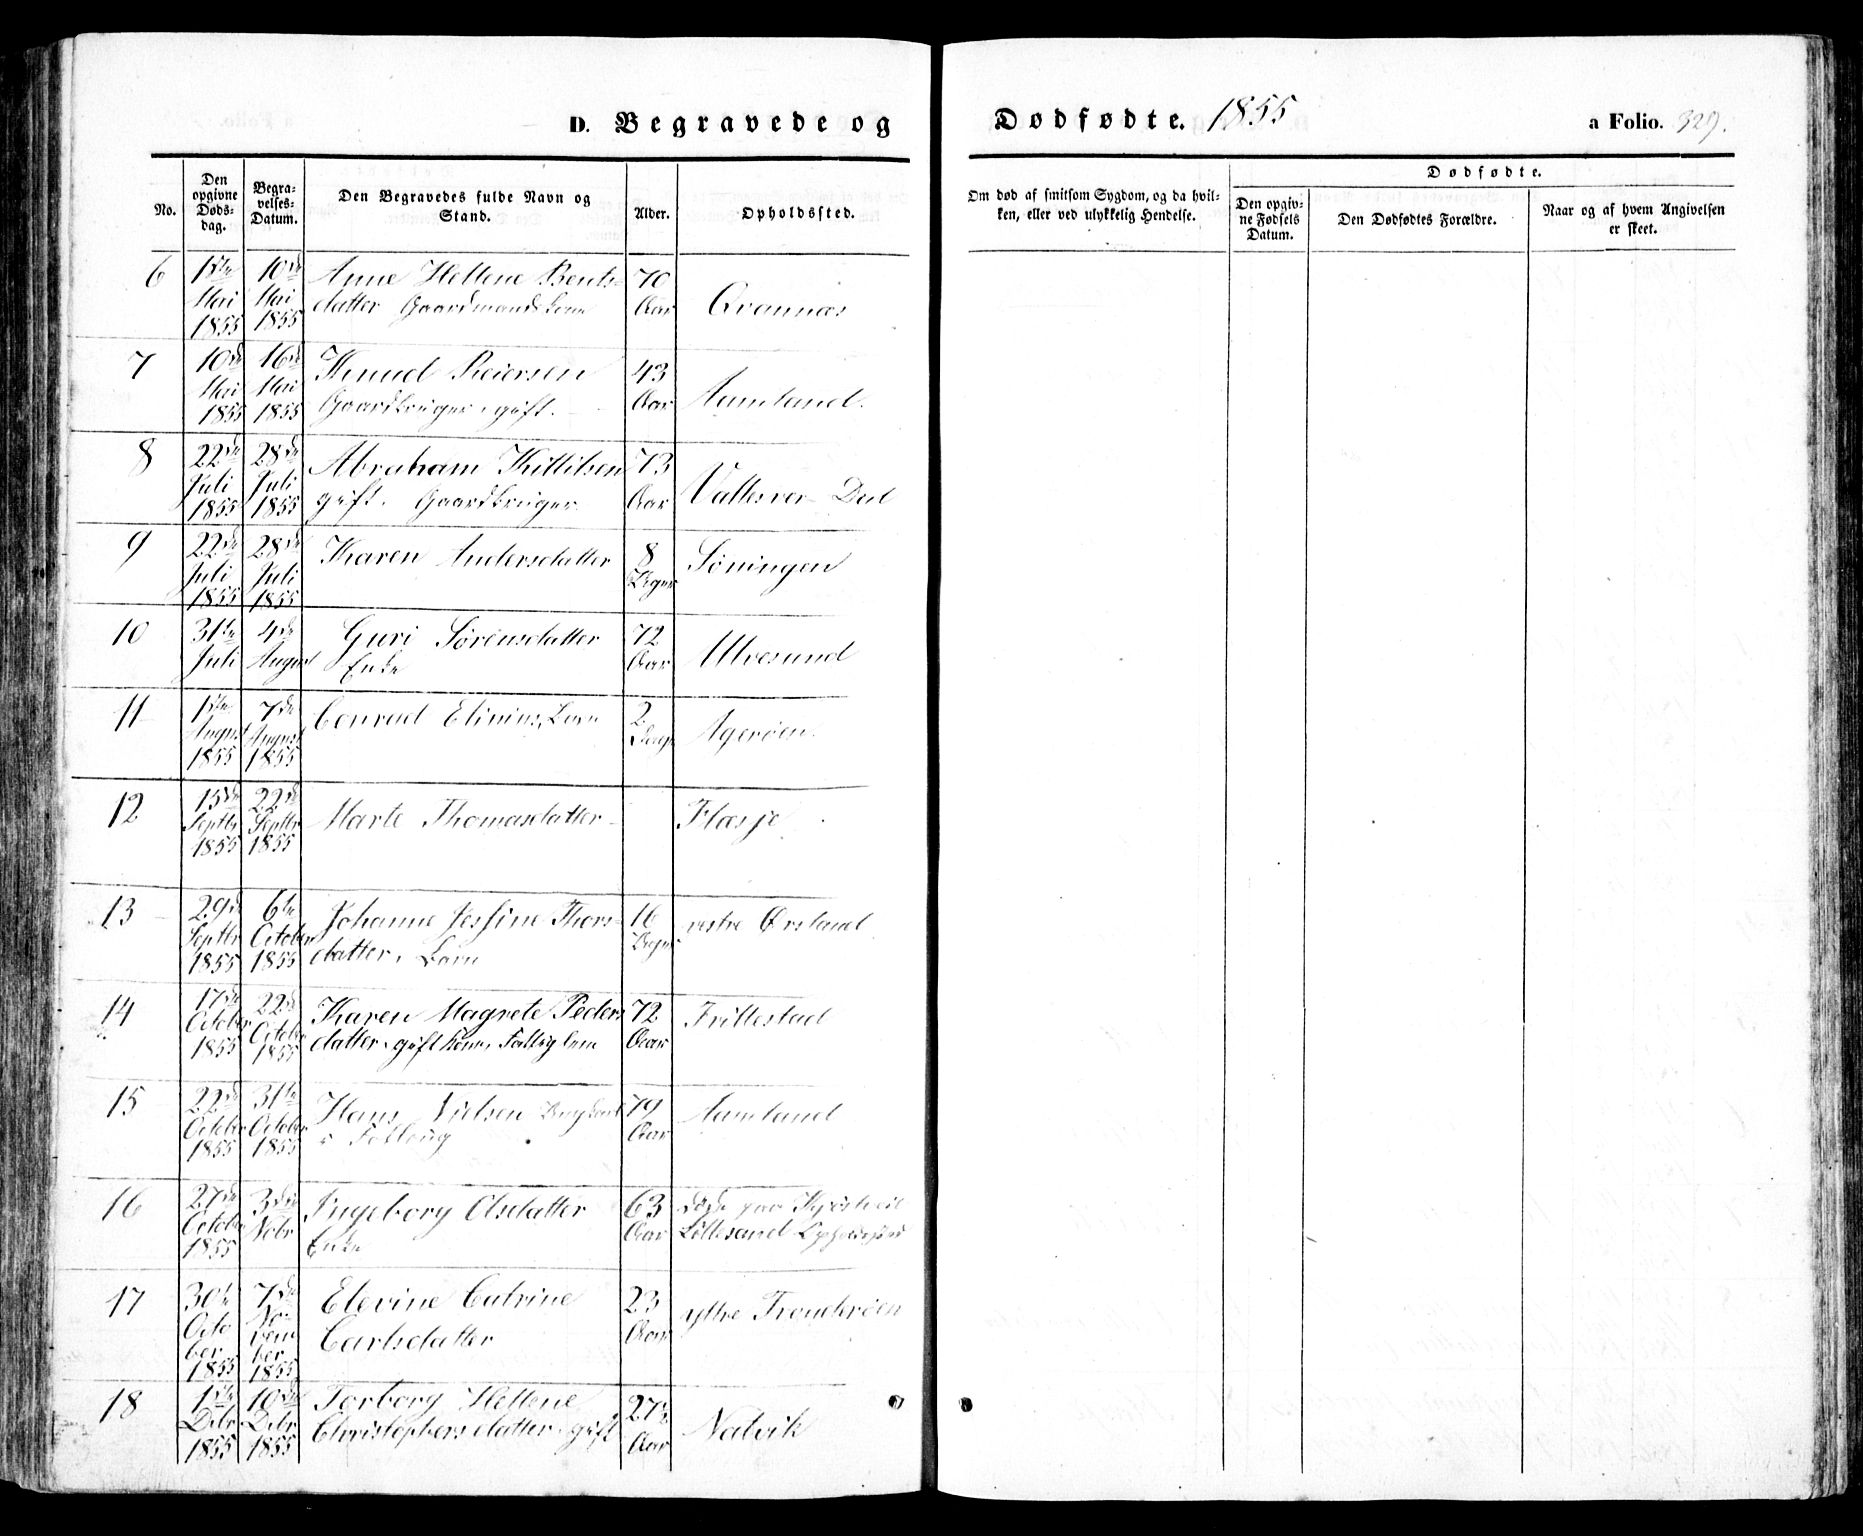 D. Begravede og Dødfødte. 1855 a Folio. 329.
No.
Den opgivne Døds-dag.
Begra-velses-Datum.
Den Begravedes fulde Navn og Stand.
Alder.
Opholdssted.
Om død af smitsom Sygdom, og da hvil-ken, eller ved ulykkelig Hendelse.
Dødfødte.
Den opgiv-ne Fødsels Datum.
Den Dødfødtes Forældre.
Naar og af hvem Angivelsen er skeet.
6 1ste Mai 1855 10de Mai 1855 Anne Hellene Bents-datter Gaardmandskone 70 Aar Grannæs
7 10de Mai 1855 16de Mai 1855 Knud Reiersen Gaardbruger, gift. 43 Aar Aamland.
8 22de Juli 1855 28de Juli 1855 Abraham Kittilsen gift. Gaardbruger. 73 Aar Vallesver Dal
9 22de Juli 1855 28de Juli 1855 Karen Andersdatter 8 Dage Søningen
10 31te Juli 4de August Guri Sørensdatter Enke 72 Aar Ulvesund
11 1ste August 1855 7de August 1855 Conrad Elinius, Barn 2 Agerøen.
12 15de Septbr 1855 22de Septbr 1855 Marte Thomasdatter Flasje
13 29de Septbr 1855 6te October 1855 Johanne Jessine Thors-datter, Barn 16 Dage vestre Ørsland
14 17de October 1855 22de October 1855 Karen Magrete Peders datter, gift kone, Fattiglem 72 Aar Frillestad
15 22de October 1855 31te October 1855 Hans Nielsen 79 Aar Aamland
16 27de October 1855 3die Novbr Ingeborg Olsdatter Enke 63 Aar døde paa Lillesand
17 30te October 1855 7de November 1855 Elevine Catrine Carlsdatter 23 Aar yttre Tronderøen
18 1ste Debr 1855 10de Debr 1855 Torborg Hellene Christophersdatter, gift 27½ Aar Natvik